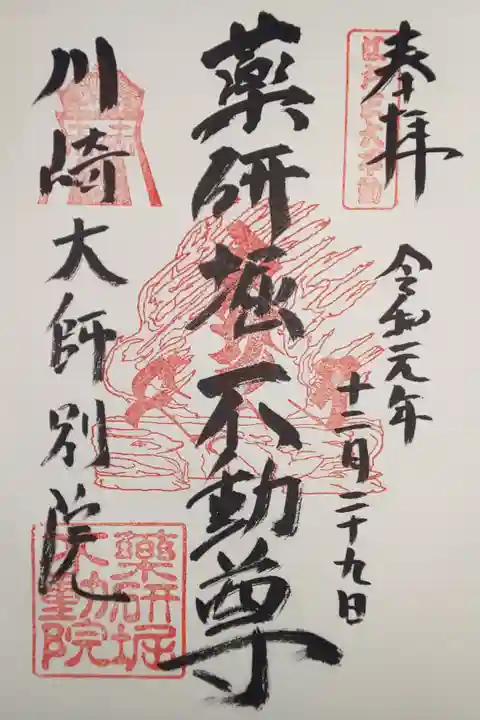 奉拝
令和元年
十二月二十九日
薬研堀不動尊
川崎大師別院
薬研堀
不動院